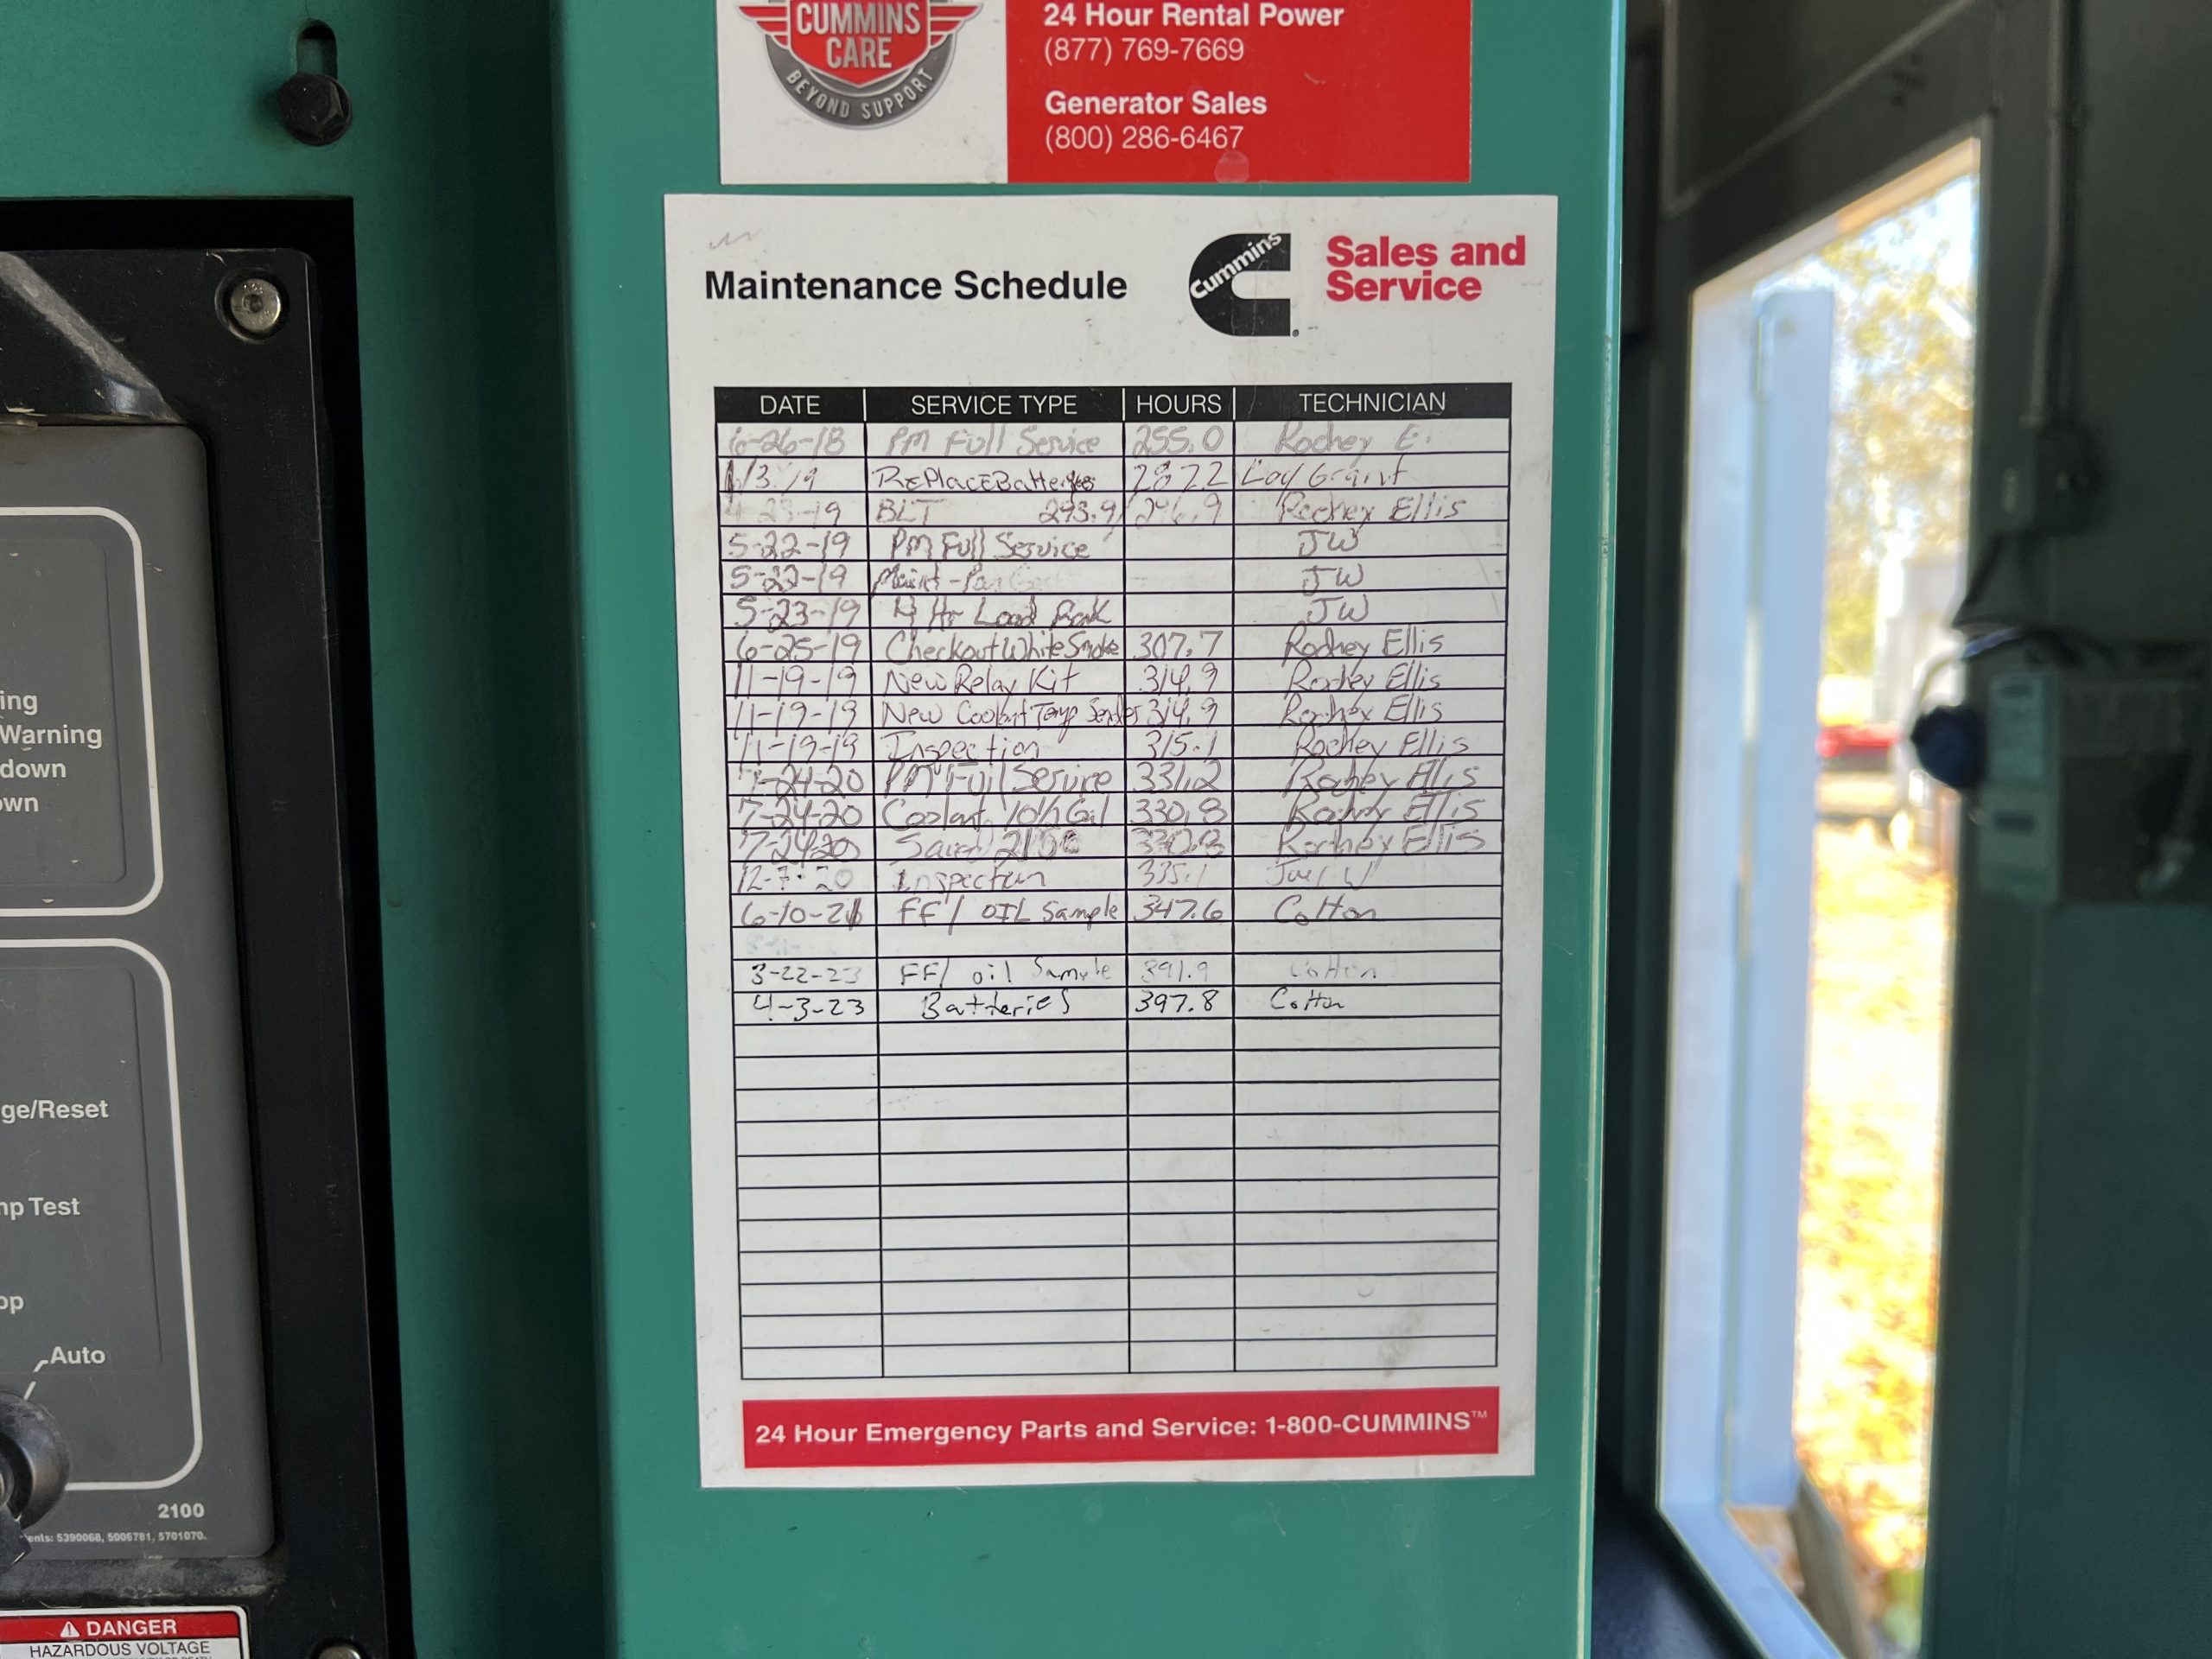 CUMMINS
CARE
BEYOND SUPPORT
24 Hour Rental Power
(877) 769-7669
Generator Sales
(800) 286-6467
Maintenance Schedule
Cummins
Sales and
Service
DATE SERVICE TYPE HOURS TECHNICIAN
6-26-18 PM Full Service 255.0 Rodney E.
1/3/19 RePlaceBatteries 287.2 Grant
-23-19 BLT 293.9/296.9 Rodney Ellis
5-22-19 PM Full Service JW
5-22-19 Maint - JW
5-23-19 4 Hr Load Bank JW
6-25-19 Checkout White Smoke 307.7 Rodney Ellis
11-19-19 New Relay Kit 314.9 Rodney Ellis
11-19-19 New Coolant Temp Sender 314.9 Rodney Ellis
11-19-19 Inspection 315.1 Rodney Ellis
7-24-20 PM Full Service 331.2 Rodney Ellis
7-24-20 Coolant Gal 330.8 Rodney Ellis
7-24-20 330.8 Rodney Ellis
12-7-20 Inspection 335.1 Joel W
6-10-21 FF/ OIL Sample 347.6 Cotton
3-22-23 FF/ oil Sample 391.9 Cotton
4-3-23 Batteries 397.8 Cotton
24 Hour Emergency Parts and Service: 1-800-CUMMINS™
ing
Warning
down
own
ge/Reset
mp Test
op
Auto
2100
ents: 5390068, 5006781, 5701070.
DANGER
HAZARDOUS VOLTAGE